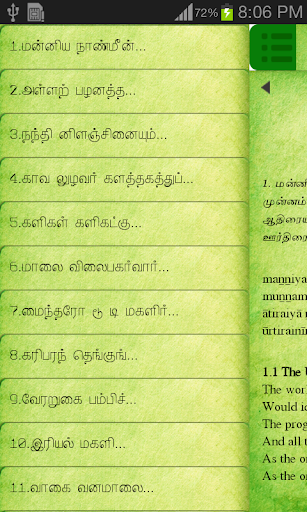 72% 8:06 PM
1.மன்னிய நாண்மீன்...
2.அள்ளற் பழனத்த...
3.நந்தி னிளஞ்சினையும்...
4.காவ லுழவர் களத்தகத்துப்...
5.களிகள் களிகட்கு...
6.மாலை விலைபகர்வார்...
7.மைந்தரோ டூ டி மகளிர்...
8.கரிபரந் தெங்குங்...
9.வேரறுகை பம்பிச்...
10.இரியல் மகளி...
11.வாகை வனமாலை...
1. மன்னி
முன்னம்
ஆதிரைய
ஊர்திரை
manniya
munnam
ātiraiyā
ūrtirainī
1.1 The U
The wor
Would ic
The prog
And all t
As the o
As the o